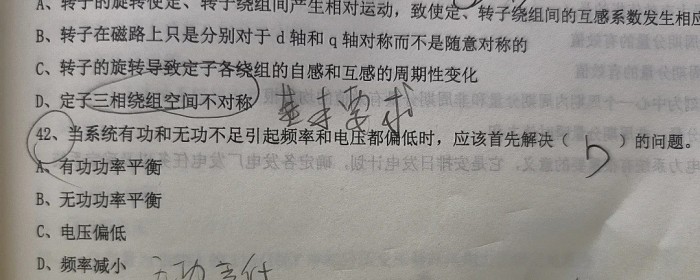 A、转子的旋转使定、转子绕组间产生相对运动，致使定、转子绕组间的互感系数发生相应
B、转子在磁路上只是分别对于 d 轴和 q 轴对称而不是随意对称的
C、转子的旋转导致定子各绕组的自感和互感的周期性变化
D、定子三相绕组空间不对称
42、当系统有功和无功不足引起频率和电压都偏低时，应该首先解决（ b ）的问题。
A、有功功率平衡
B、无功功率平衡
C、电压偏低
D、频率减小